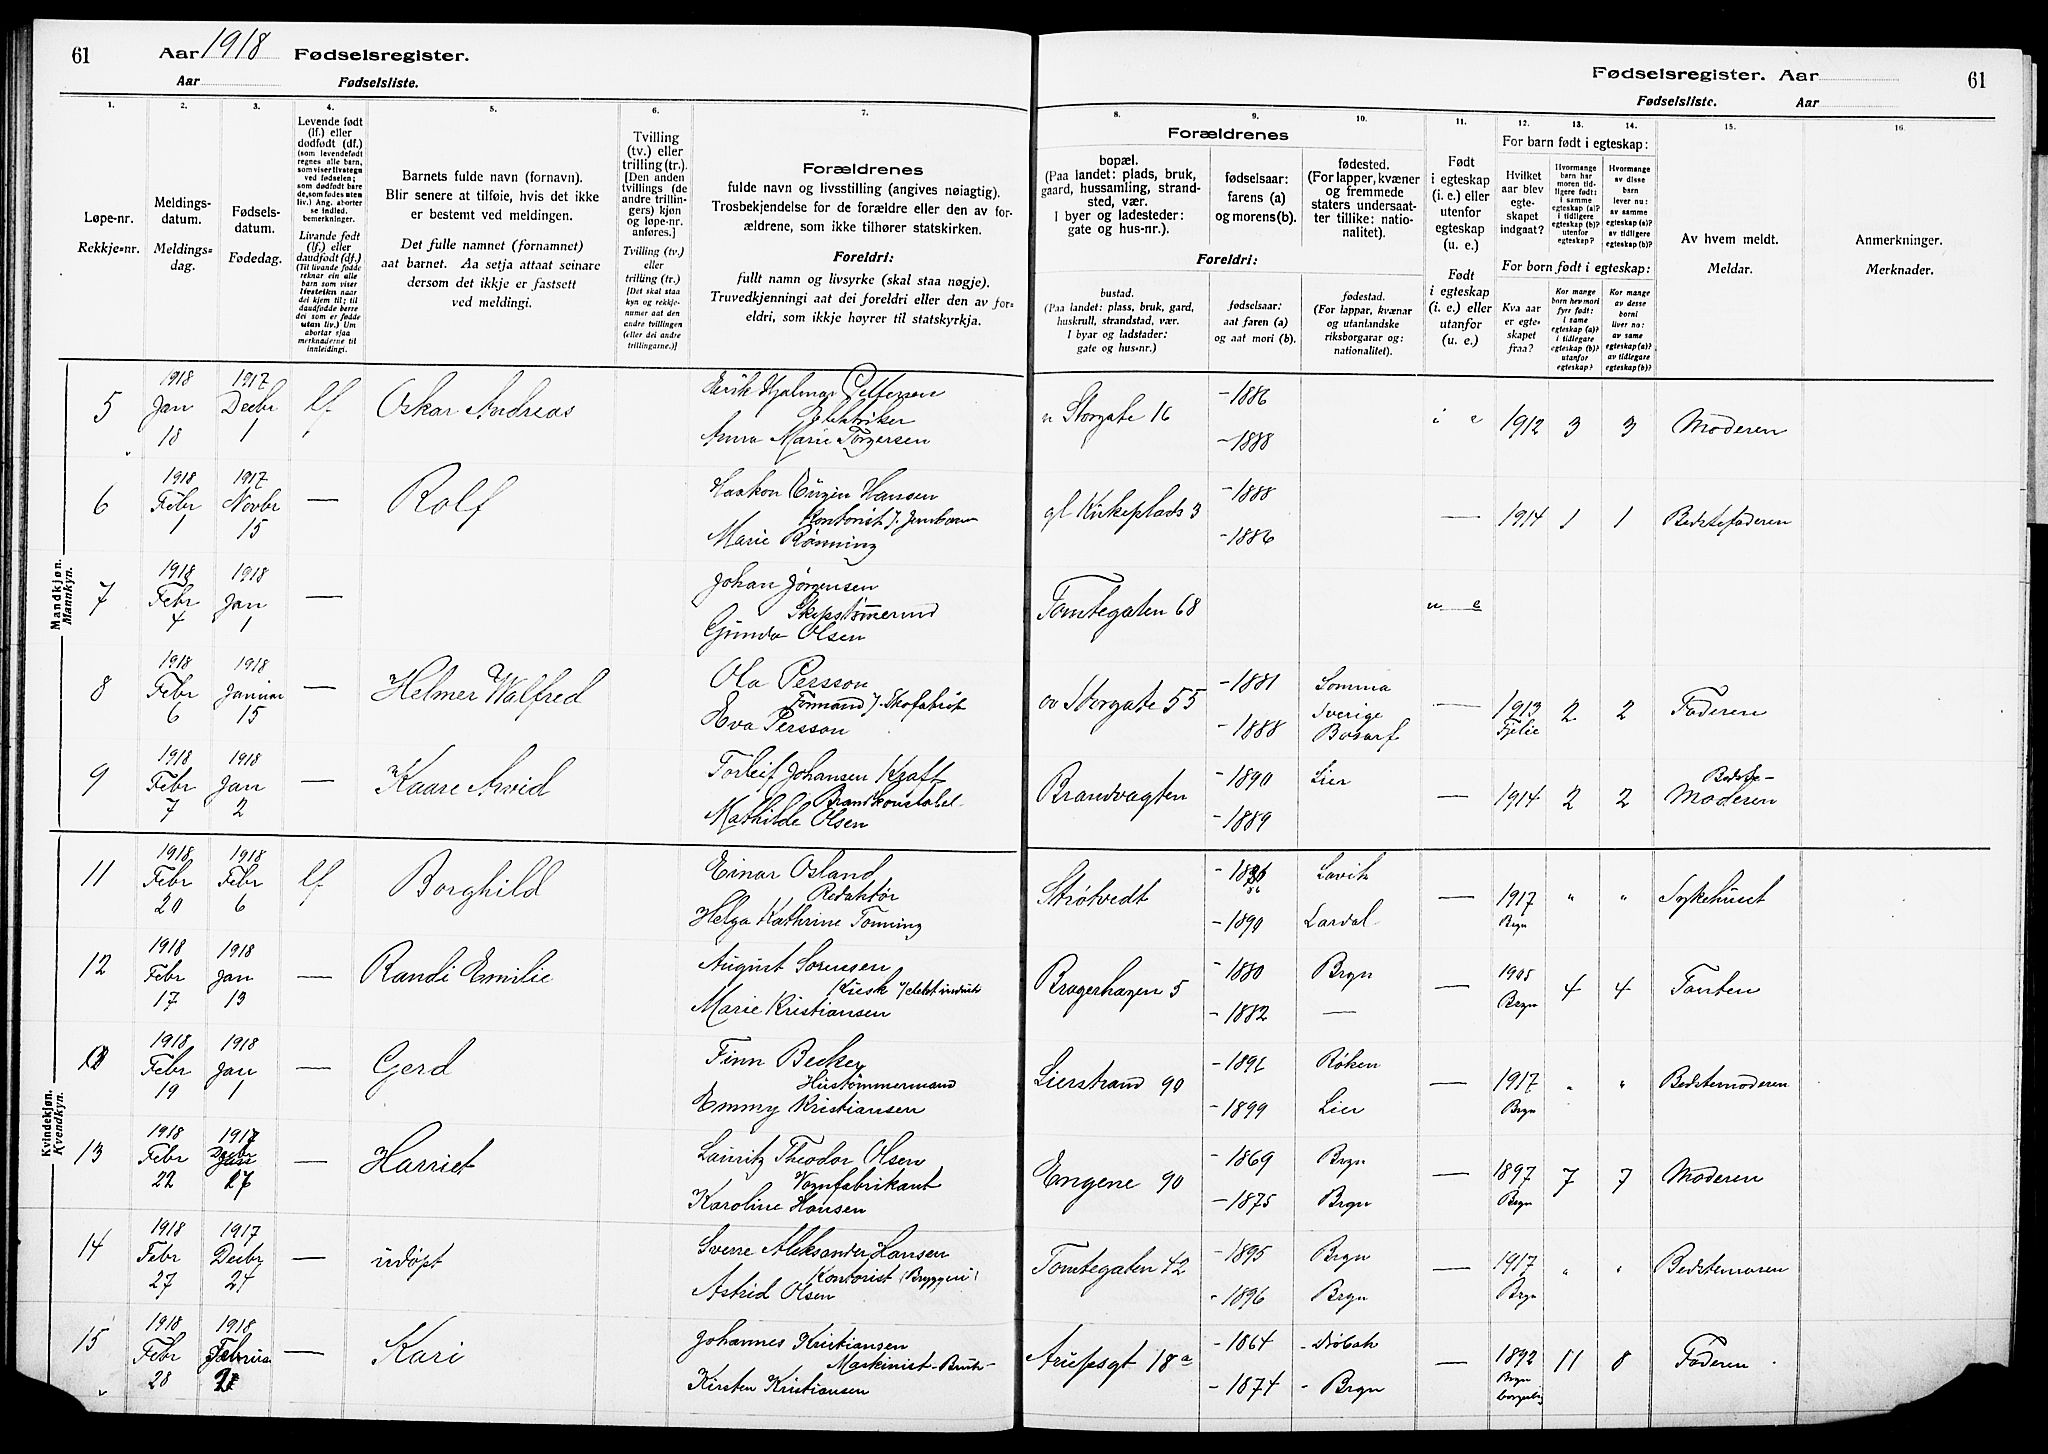 61 Aar 1918 Fødselsregister.
Aar Fødselsliste.
Fødselsregister. Aar 61
Fødselsliste. Aar
1. 2. 3. 4. 5. 6. 7. 8. 9. 10. 11. 12. 13. 14. 15. 16.
Løpe-nr.
Rekkje=nr.
Meldings-
datum.
Meldings=
dag.
Fødsels-
datum.
Fødedag.
Levende født
(lf.) eller
dødfødt (df.)
(som levendefødt
regnes alle barn,
som viser livstegn
ved fødselen;
som dødfødt bare
de, som fødes uten
liv.) Ang. aborter
se indled.
bemerkninger.
Livande født
(lf.) eller
daudfødt (df.)
(Til livande fødde
reknar ein alle
barn som viser
livsteikn naar
dei kjem til; til
daudfødde berre
dei som er fødde
utan liv.) Um
abortar sjaa
merknaderne til
innleidingi.
Barnets fulde navn (fornavn).
Blir senere at tilføie, hvis det ikke
er bestemt ved meldingen.
Det fulle namnet (fornamnet)
aat barnet. Aa setja attaat seinare
dersom det ikkje er fastsett
ved meldingi.
Tvilling
(tv.) eller
trilling (tr.).
[Den anden
tvillings (de
andre trillin-
gers) kjøn
og løpe-nr.
anføres.]
Tvilling (tv.)
eller
trilling (tr.)
[Det skal staa
kyn og rekkje-
numer aat den
andre tvillingen
(eller dei andre
trillingarne.)]
Forældrenes
fulde navn og livsstilling (angives nøiagtig).
Trosbekjendelse for de forældre eller den av for-
ældrene, som ikke tilhører statskirken.
Foreldri:
fullt namn og livsyrke (skal staa nøgje).
Truvedkjenningi aat dei foreldri eller den av for=
eldri, som ikkje høyrer til statskyrkja.
Forældrenes
bopæl.
(Paa landet: plads, bruk,
gaard, hussamling, strand-
sted, vær.
I byer og ladesteder:
gate og hus-nr.).
fødselsaar:
farens (a)
og morens (b).
fødested.
(For lapper, kvæner
og fremmede
staters undersaat-
ter tillike: natio-
nalitet).
Foreldri:
bustad.
(Paa landet: plass, bruk, gard,
huskrull, strandstad, vær.
I byar og ladstader:
gate og hus-nr.)
fødselsaar:
aat faren (a)
og aat mori (b).
fødestad.
(For lappar, kvænar
og utanlandske
riksborgarar og:
nationalitet).
Født
i egteskap
(i. e.) eller
utenfor
egteskap
(u. e.)
Født
i egteskap
(i. e.) eller
utanfor
(u. e.)
For barn født i egteskap:
Hvilket
aar blev
egte-
skapet
indgaat?
Hvormange
barn har
moren tid-
ligere født:
i samme
egteskap (a)?
i tidligere
egteskap (b)?
utenfor
egteskap?
Hvormange
av disse
barn
lever nu:
av samme
egteskap (a)?
av tidligere
egteskap (b)?
For born født i egteskap:
Kva aar
er egte-
skapet
fraa?
Kor mange
born hev mori
fyrr født:
i same
egteskap (a)?
i tidlegare
egteskap (b)?
utanfor
egteskap?
Kor mange
av desse
borni
liver no:
av same
egteskap (a)?
av tidlegare
egteskap (b)?
Av hvem meldt.
Meldar.
Anmerkninger.
Merknader.
Mandkjøn.
Mannkyn.
5 1918 Jan 18 1917 Decbr 1 lf Oskar Andreas
Erik Hjalmar Pettersen
Elektriker
Anna Marie Torgersen
n Storgate 16 - 1886 - 1888 i e 1912 3 3 Moderen
6 1918 Febr 1 1917 Novbr 15 — Rolf
Haakon Eugin Hansen
Kontorist v. Jernbanen
Marie Rønning
gl Kirkeplads 3 - 1888 - 1886 — 1914 1 1 Bedstefaderen
7 1918 Febr 4 1918 Jan 1 —
Johan Jørgensen
Skipstømmermd
Gunda Olsen
Tomtegaten 68 u e
8 1918 Febr 6 1918 Januar 15 — Helmer Walfred
Ola Persson
Formand v. Skofabrik
Eva Persson
ov Storgate 55 - 1881 Lomma Sverige - 1888 Bosarf — 1913 Fjelie 2 2 Faderen
9 1918 Febr 7 1918 Jan 2 — Kaare Arvid
Torleif Johansen Kraft
Brandkonstabel
Mathilde Olsen
Brandvagten - 1890 Lier - 1889 — 1914 2 2 Bedste-Moderen
Kvindekjøn.
Kvendkyn.
11 1918 Febr 20 1918 Febr 6 lf Borghild
Einar Osland
Redaktør
Helga Kathrine Tonning
Strøtvedt - 1886 Lavik - 1890 Lardal — 1917 Brgn " " Sykehuset
12 1918 Febr 17 1918 Jan 13 — Randi Emilie
August Sørensen
Kusk v/elekt indust
Marie Kristiansen
Bragerhagen 5 - 1880 Brgn - 1882 — — 1905 Brgn 4 4 Tanten
1918 Febr 19 1918 Jan 1 — Gerd
Finn Becker
Hustømmermand
Emmy Kristiansen
Lierstrand 90 - 1896 Røken - 1899 Lier — 1917 Brgn " " Bedstemoderen
13 1918 Febr 22 1917 Decbr 27 — Harriet
Lauritz Theodor Olsen
Vognfabrikant
Karoline Hansen
Engene 90 - 1869 Brgn - 1875 Brgn — 1897 Brgn 7 7 Moderen
14 1918 Febr 27 1917 Decbr 24 — udøpt
Sverre Aleksander Hansen
Kontorist (Bryggeri)
Astrid Olsen
Tomtegaten 42 - 1895 Brgn - 1896 Brgn — 1917 Brgn " " Bedstemoren
15 1918 Febr 28 1918 Februar — Kari
Johannes Kristiansen
Maskinist - Bruk -
Kirsten Kristiansen
18a - 1864 - Drøbak - 1874 - Brgn — 1892 Brgn 11 8 Faderen